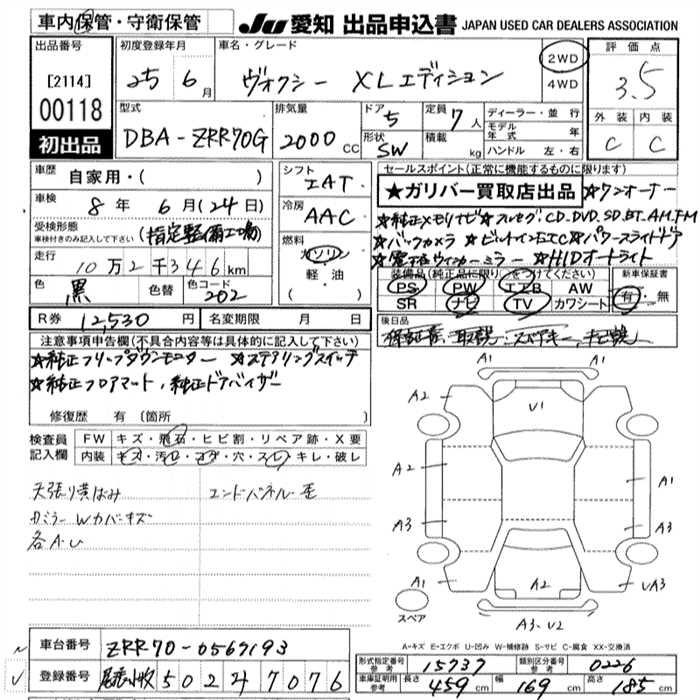 車内保管・守衛保管
JU 愛知 出品申込書 JAPAN USED CAR DEALERS ASSOCIATION
出品番号
[2114]
00118
初出品
初度登録年月
25 6月
車名・グレード
ヴォクシー XLエディション
2WD
4WD
評価点
3.5
外装 内装
C C
型式
DBA-ZRR70G
排気量
2000cc
ドア
5
形状
SW
定員
7人
積載
kg
ディーラー・並行
モデル年式 年
ハンドル 左・右
車歴
自家用・( )
車検
8年 6月(24日)
受検形態
車検付きのみ記入して下さい
(指定整備工場)
走行
10万2千346km
色
黒
色替
色コード
202
シフト
IAT
冷房
AAC
燃料
ガソリン
軽油
( )
セールスポイント(正常に機能するものに限ります)
★ガリバー買取店出品 ★ワンオーナー
★純正メモリナビ ★フルセグ,CD,DVD,SD,BT,AM,FM
★バックカメラ ★ビルトインETC ★パワースライドドア
★電格ウィンカーミラー ★HIDオートライト
装備品(純正品に限り)をつけてください
PS PW エアB AW
SR ナビ TV カワシート
新車保証書
有・無
R券 12,530円
名変期限 月 日
後日品
保証書、取説、スペアキー、ナビ説
注意事項申告欄(不具合内容等は具体的に記入して下さい)
★純正フリップダウンモニター ★ステアリングスイッチ
★純正フロアマット、純正ドアバイザー
修復歴 有 (箇所 )
検査員記入欄
FW キズ・飛石・ヒビ割・リペア跡・X要
内装 キズ・汚レ・コゲ・穴・スレ・キレ・破レ
天張り黄ばみ エンドパネル歪
ミラーWカバーキズ
各A・U
A1 A1
A2 U1 A1
A2 A1
A3 A3
A1 A2 UA3
スペア
A3・U2
A=キズ E=エクボ U=凹み W=補修跡 S=サビ C=腐食 XX=交換済
車台番号 ZRR70-0569193
登録番号 尾張小牧 502 ム 7076
型式指定番号 参考 15737
類別区分番号 参考 0226
車庫証明用 参考 長さ 459cm 幅 169cm 高さ 185cm